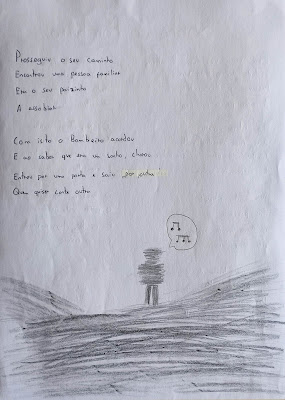 Prosseguiu o seu caminho
Encontrou uma pessoa familiar
Era o seu paizinho
A assobiar

Com isto o Bombeiro acordou
E ao saber que era um sonho, chorou
Entrou por uma porta e saiu por outra
Quem quiser conte outra